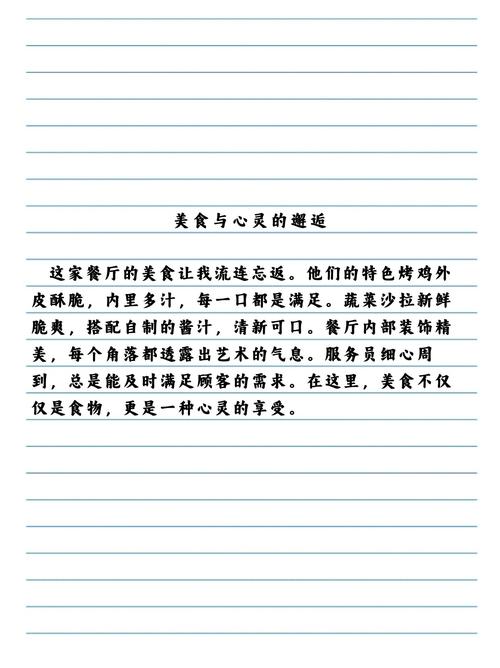 美食与心灵的邂逅
这家餐厅的美食让我流连忘返。他们的特色烤鸡外
皮酥脆，内里多汁，每一口都是满足。蔬菜沙拉新鲜
脆爽，搭配自制的酱汁，清新可口。餐厅内部装饰精
美，每个角落都透露出艺术的气息。服务员细心周
到，总是能及时满足顾客的需求。在这里，美食不仅
仅是食物，更是一种心灵的享受。